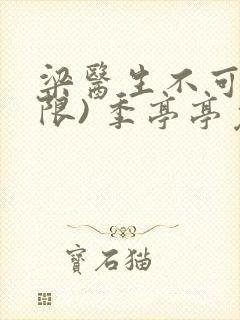 梁醫生不可
限) 季亭亭
寶石貓